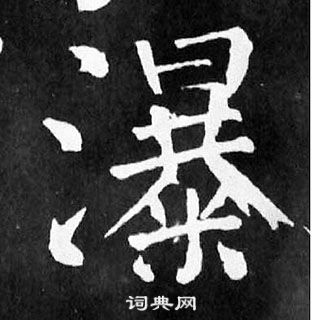 瀑
词典网